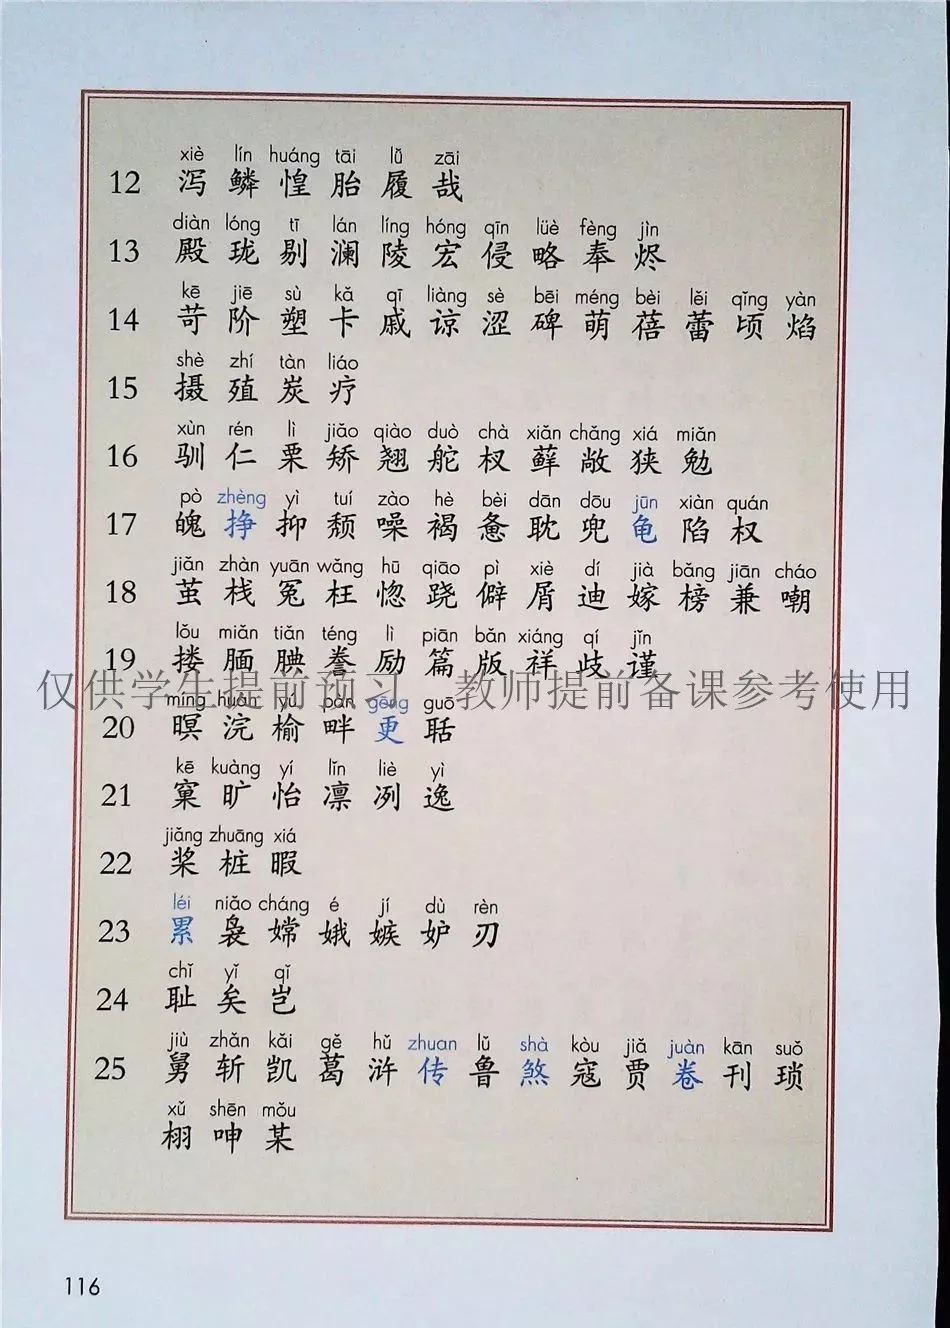 xiè lín huáng tāi lǚ zāi
12 泻 鳞 惶 胎 履 哉
diàn lóng tī lán líng hóng qīn lüè fèng jìn
13 殿 珑 剔 澜 陵 宏 侵 略 奉 烬
kē jiē sù kǎ qī liàng sè bēi méng bèi lěi qǐng yàn
14 苛 阶 塑 卡 戚 谅 涩 碑 萌 蓓 蕾 顷 焰
shè zhí tàn liáo
15 摄 殖 炭 疗
xùn rén lì jiǎo qiào duò chà xiǎn chǎng xiá miǎn
16 驯 仁 栗 矫 翘 舵 杈 藓 敞 狭 勉
pò zhèng yì tuí zào hè bèi dān dōu jūn xiàn quán
17 魄 挣 抑 颓 噪 褐 惫 耽 兜 龟 陷 权
jiǎn zhàn yuān wǎng hū qiāo pì xiè dí jià bǎng jiān cháo
18 茧 栈 冤 枉 惚 跷 僻 屑 迪 嫁 榜 兼 嘲
lǒu miǎn tiǎn téng lì piān bǎn xiáng qí jǐn
19 搂 腼 腆 誊 励 篇 版 祥 歧 谨
仅供学生提前预习 教师提前备课参考使用
míng huàn yú pàn gēng guō
20 暝 浣 榆 畔 更 聒
kē kuàng yí lǐn liè yì
21 窠 旷 怡 凛 冽 逸
jiǎng zhuāng xiá
22 桨 桩 暇
léi niǎo cháng é jí dù rèn
23 累 袅 嫦 娥 嫉 妒 刃
chǐ yǐ qǐ
24 耻 矣 岂
jiù zhǎn kǎi gě hǔ zhuan lǔ shà kòu jiǎ juàn kān suǒ
25 舅 斩 凯 葛 浒 传 鲁 煞 寇 贾 卷 刊 琐
xǔ shēn mǒu
栩 呻 某
116